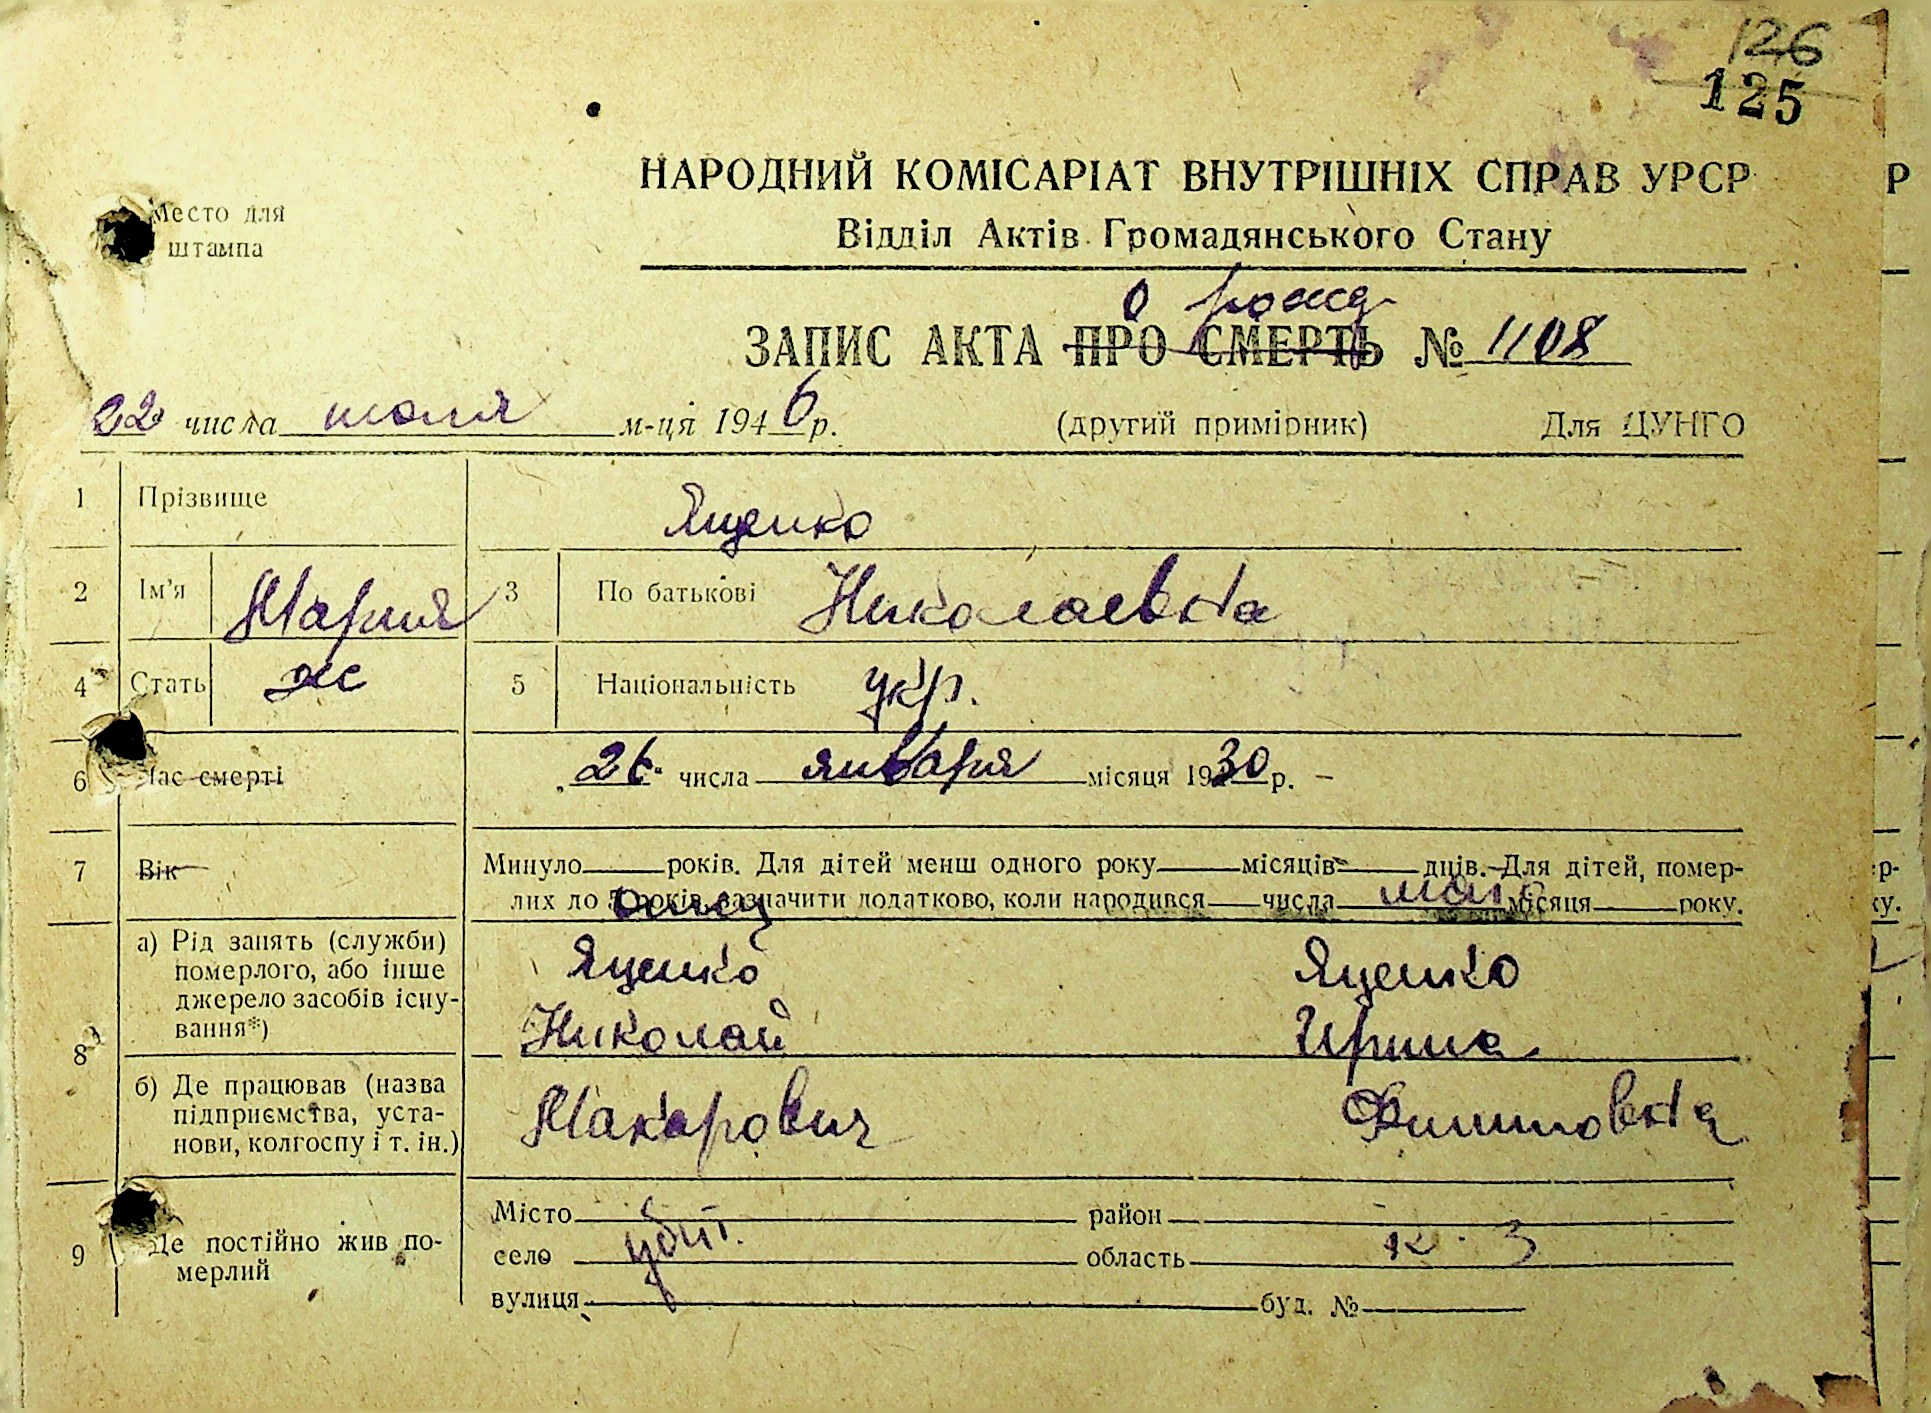 126
125
НАРОДНИЙ КОМІСАРІАТ ВНУТРІШНІХ СПРАВ УРСР Р
Место для
штампа
Відділ Актів Громадянського Стану
о рожд
ЗАПИС АКТА ПРО СМЕРТЬ № 1108
22 числа июля м-ця 1946 р. (другий примірник) Для ЦУНГО
1 Прізвище Яценко
2 Ім'я Мария 3 По батькові Николаевна
4 Стать ж 5 Національність укр.
6 Час смерті 26. числа января місяця 1930 р. –
7 Вік Минуло років. Для дітей менш одного року місяців днів. Для дітей, помер-
лих до 5 років зазначити додатково, коли народився числа місяця року.
отец мать
8
а) Рід занять (служби)
померлого, або інше
джерело засобів існу-
вання*)
Яценко Яценко
Николай Ирина
б) Де працював (назва
підприємства, уста-
нови, колгоспу і т. ін.)
Макарович Филипповна
9 Де постійно жив по-
мерлий
Місто район
село убит. область к. з
вулиця буд. №